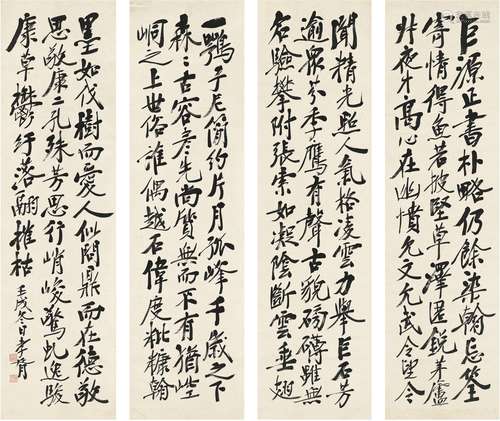 巨源正書朴略仍餘染翰忘筌
寄情得魚若披堅草澤匿銳茅廬
叔夜才高心在幽憤允文允武令望令
聞精光照人氣格凌雲力舉巨石芳
逾眾芬季鷹有聲古貌磅礴雖無
右驗攀附張索如凝陰斷雲垂翅
一鶚子尼簡約片月孤峰千歲之下
森〻古容彥先尚質無而下有猶崆
峒之上世俗誰偶越石偉度秕糠翰
墨如伐樹而愛人似問鼎而在德敬
思敬康二孔殊芳思行峭峻驚虬逸駿
康草鬱紆落翮摧枯 壬戌冬日孝胥